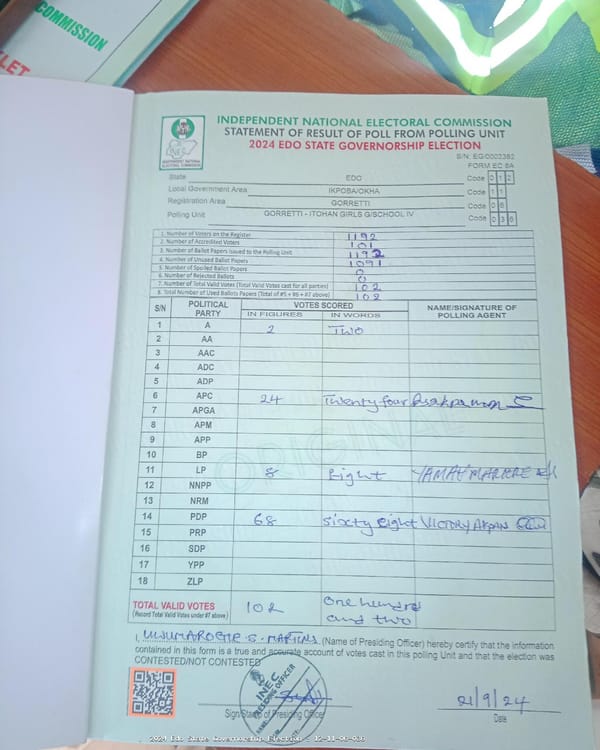 COMMISSION
LET
INDEPENDENT NATIONAL ELECTORAL COMMISSION
STATEMENT OF RESULT OF POLL FROM POLLING UNIT
2024 EDO STATE GOVERNORSHIP ELECTION
S/N: EG/0002382
FORM EC 8A
State EDO Code 0 1 2
Local Government Area IKPOBA/OKHA Code 1 1
Registration Area GORRETTI Code 0 6
Polling Unit GORRETTI - ITOHAN GIRLS G/SCHOOL IV Code 0 3 6
1. Number of Voters on the Register 1192
2. Number of Accredited Voters 101
3. Number of Ballot Papers Issued to the Polling Unit 1192
4. Number of Unused Ballot Papers 1091
5. Number of Spoiled Ballot Papers 0
6. Number of Rejected Ballots 0
7. Number of Total Valid Votes (Total Valid Votes cast for all parties) 102
8. Total Number of Used Ballots Papers (Total of #5 + #6 + #7 above) 102
S/N POLITICAL PARTY VOTES SCORED NAME/SIGNATURE OF POLLING AGENT
IN FIGURES IN WORDS
1 A 2 Two
2 AA
3 AAC
4 ADC
5 ADP
6 APC 24 Twenty four
7 APGA
8 APM
9 APP
10 BP
11 LP 8 Eight
12 NNPP
13 NRM
14 PDP 68 Sixty eight VICTORY AKPAN
15 PRP
16 SDP
17 YPP
18 ZLP
ORIGINAL
TOTAL VALID VOTES 102 One hundred and two
(Record Total Valid Votes under #7 above)
I, S. MARTINS (Name of Presiding Officer) hereby certify that the information
contained in this form is a true and accurate account of votes cast in this polling Unit and that the election was
CONTESTED/NOT CONTESTED
INEC
PRESIDING OFFICER
Sign/Stamp of Presiding Officer
21/9/24
Date
2024 Edo State Governorship Election - 12-11-06-036